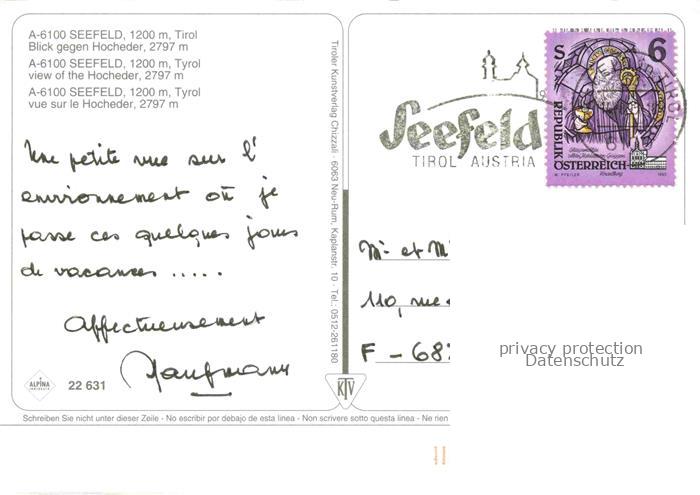 A-6100 SEEFELD, 1200 m, Tirol
Blick gegen Hocheder, 2797 m
A-6100 SEEFELD, 1200 m, Tyrol
view of the Hocheder, 2797 m
A-6100 SEEFELD, 1200 m, Tyrol
vue sur le Hocheder, 2797 m
Une petite vue sur l'
environnement où je
passe ces quelques jours
de vacances .....
Affectueusement
Kaufmann
ALPINA
22 631
Tiroler Kunstverlag Chizzali · 6063 Neu-Rum, Kaplanstr. 10 · Tel.: 0512-261180
KTV
Schreiben Sie nicht unter dieser Zeile - No escribir por debajo de esta linea - Non scrivere sotto questa linea - Ne rien
Seefeld
TIROL AUSTRIA
S 6
REPUBLIK
ÖSTERREICH
1993
Mr et M
110, rue
F - 68
privacy protection
Datenschutz